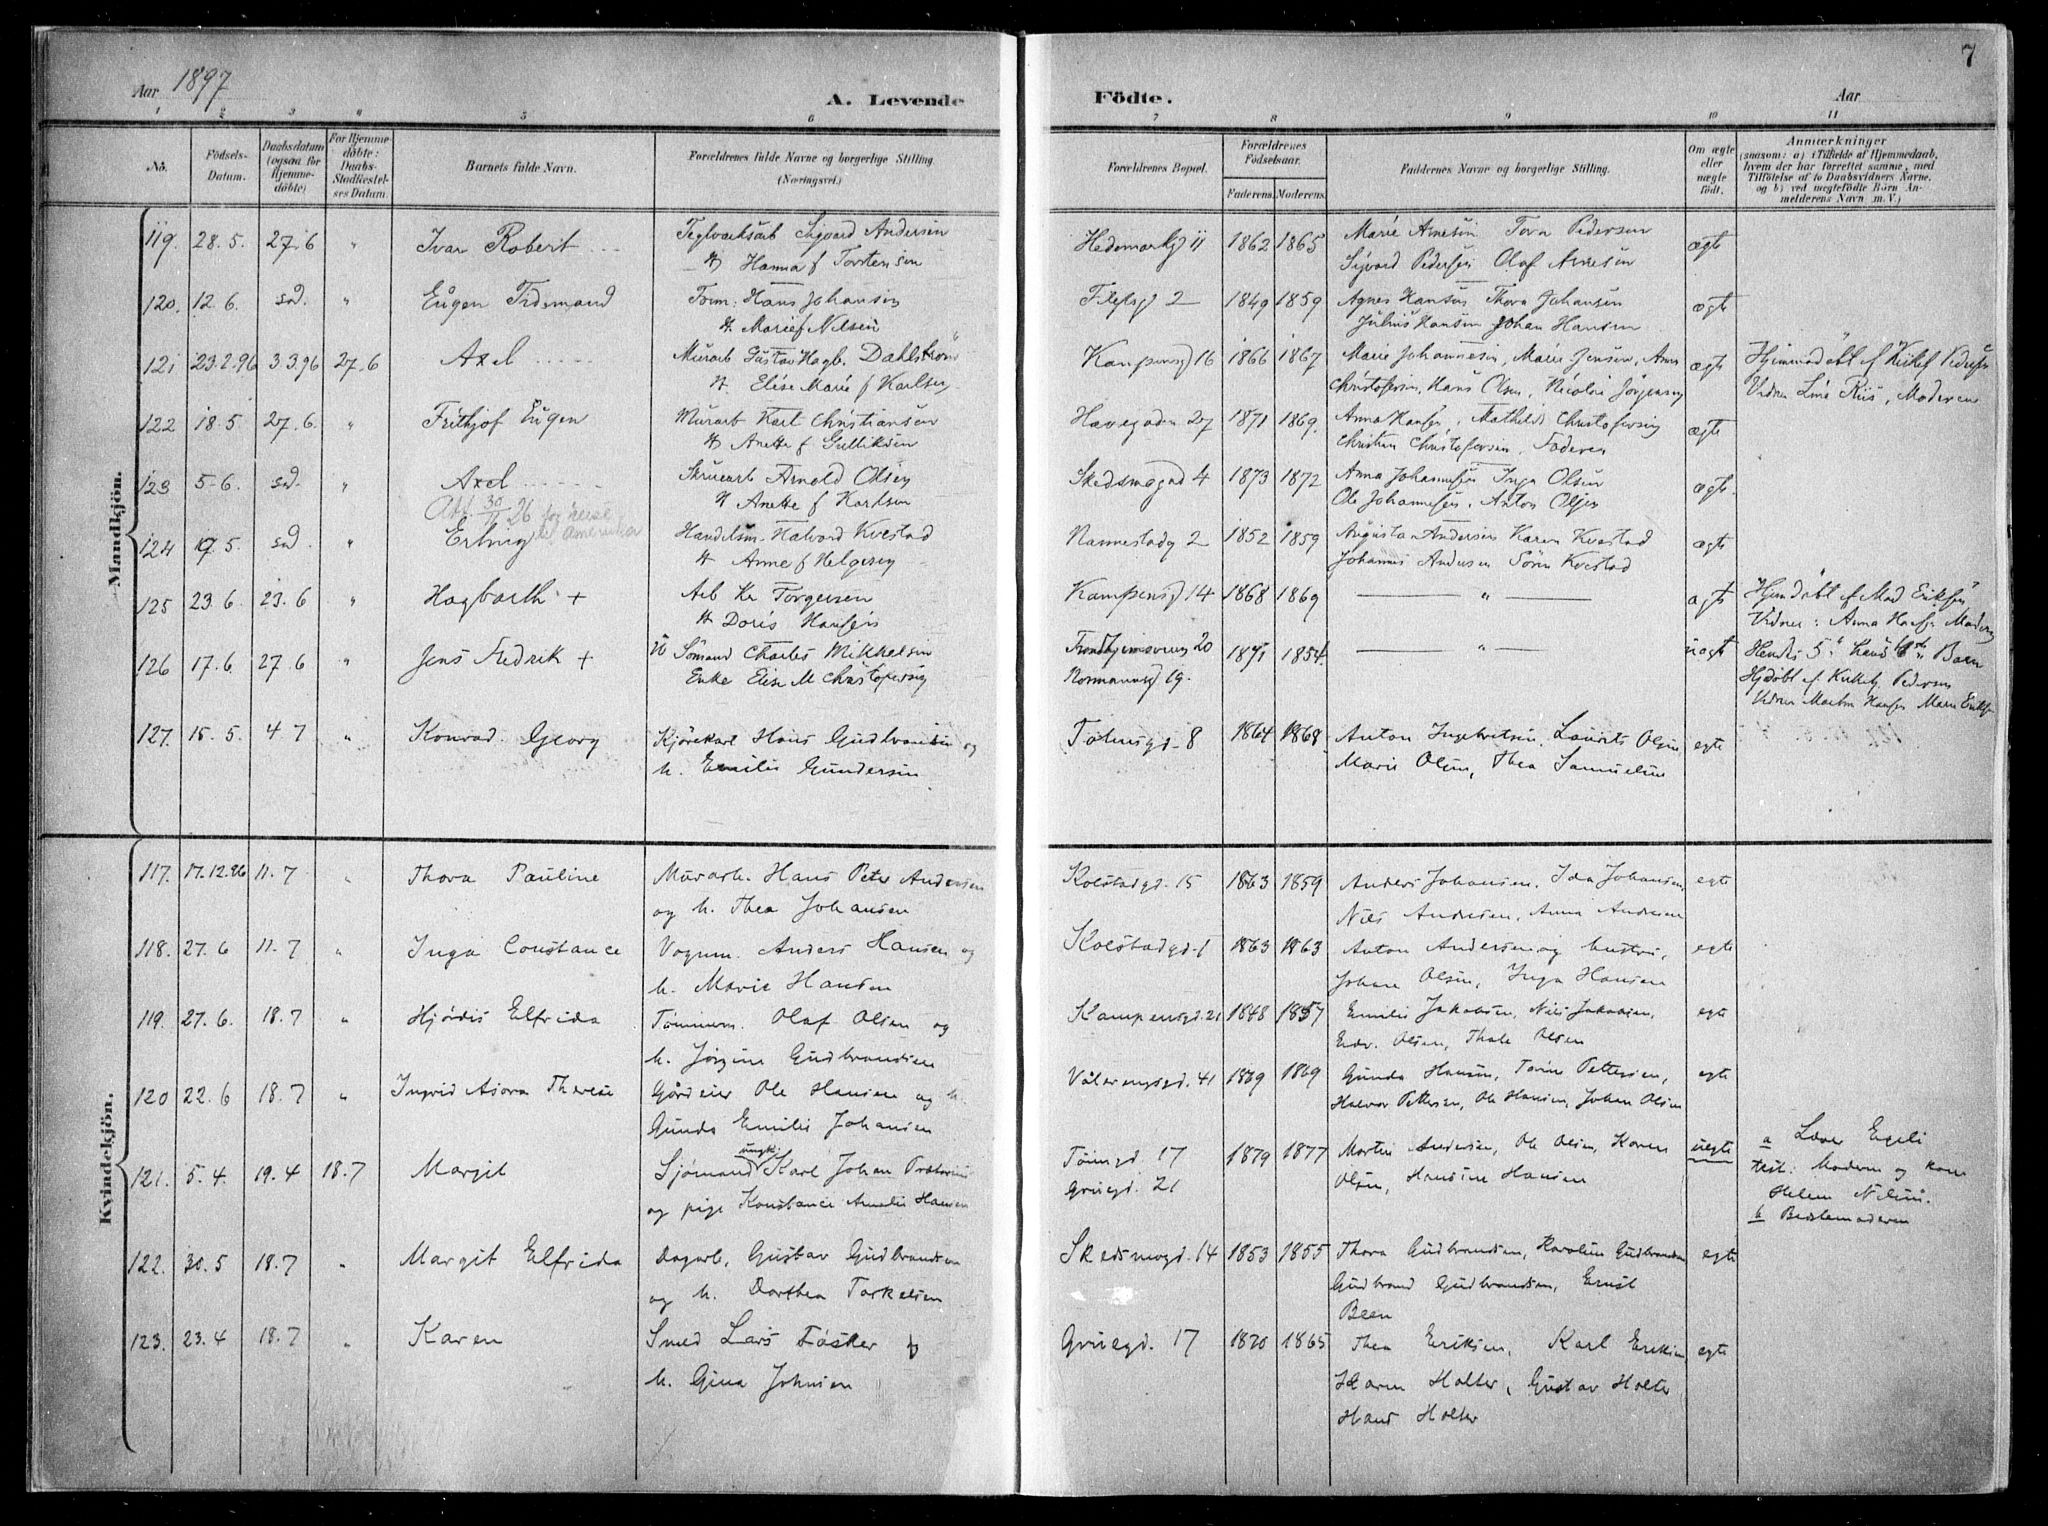 7
Aar 1897
A. Levende
Födte.
Aar
1 2 3 4 5 6 7 8 9 10 11
Nö.
Födsels-Datum.
Daabsdatum (ogsaa for Hjemme-döbte)
For Hjemme-döbte: Daabs-Stadfæstel-ses Datum.
Barnets fulde Navn.
Forældrenes fulde Navne og borgerlige Stilling. (Næringsvei.)
Forældrenes Bopæl.
Forældrenes Födselsaar.
Faderens. Moderens.
Faddernes Navne og borgerlige Stilling.
Om ægte eller uægte födt.
Anmærkninger (saasom: a) i Tilfælde af Hjemmedaab, hvem der har forrettet samme, med Tilföielse af to Daabsvidners Navne, og b) ved uegtefödte Börn An-melderens Navn m. V.)
Mandkjön.
119. 28. 5. 27. 6 " Ivar Robert Teglværksarb Sigvard Andersen Hedemarksgd 11 1862 1865 Marie Arnesen Tora Pedersen ægte
H Hanna f Torstensen Sigvard Pedersen Olaf Arnesen
120. 12. 6. sad. " Eugen Tidemand Tøm. Hans Johansen 2 1849 1859 Agnes Hansen Thora Johansen ægte
H. Marie f Nilsen Julius Hansen Johan Hansen
121 23.2.96 3.3.96 27.6 Axel Murarb Gustav Hagb. Dahlstrøm Kampensgd 16 1866 1867 Marie Johannesen, Marie Jensen, Anna ægte Hjemmedøbt af Pedersen
H Elise Marie f Karlsen Christofersen, Hans Olsen, Nicolai Jørgensen Vidner Line Riis, Moderen
122 18. 5 27. 6. " Frithjof Eugen Murarb Karl Christiansen Havegaden 27 1871 1869. Anna Hansen, Mathilde Christofersen ægte
H Anette f Gulliksen Christian Christofersen. Faderen
123 5. 6. sad. " Axel Skruearb Arnold Olsen Skedsmogad 4 1873 1872 Anna Johannesen Inga Olsen ægte.
Att. 30/11 26 for reise til Amerika H Anette f Karlsen Ole Johannesen, Anton Olsen
124 17. 5. sad. " Erling Handelsm. Halvord Kvestad Nannestadg 2 1852 1859 Augusta Andersen Karen Kvestad ægte
H Anne f Helgesen Johannes Andersen Søren Kvestad
125 23. 6. 23. 6 " Hagbarth + Arb Kr Torgersen Kampensgd 14 1868 1869 " ægte Hjemdøbt af Mad Eriksen
H Doris Hansen Vidner: Anna Hansen Moderen
126 17. 6. 27. 6 " Jens Fredrik + Sømand Charles Mikkelsen Trondhjemsveien 20 1871 1854. " uægte Hendes 5te Hans 1ste Barn
Enke Elise M Christofersen Normannsgd 19. Hjdøbt af Pedersen
Vidner Martin Hansen Marie Eriksen
127. 15. 5. 4 7 " Konrad Georg Kjørekarl Hans Gudbrandsen og Tøiensgd. 8 1864 1868 Anton Ingebretsen, Laurits Olsen egte
h. Emilie Gundersen Marie Olsen, Thea Samuelsen
Kvindekjön.
117. 17.12.96 11. 7 " Thora Pauline Murarb. Hans Peter Andersen Kolstadgd. 15 1863 1859 Anders Johansen, Ida Johansen, egte
og h. Thea Johansen Nils Andersen, Anna Andersen
118. 27. 6 11. 7 " Inga Constance Vognm. Anders Hansen og Kolstadgd. 1 1863 1863 Anton Andersen og hustru, egte
h. Marie Hansen Johan Olsen, Inga Hansen
119. 27. 6. 18. 7 " Hjördis Elfrida Tømmerm. Olaf Olsen og Kampensgd. 21 1848 1857 Emilie Jakobsen, Nils Jakobsen, egte
h. Jørgine Gudbrandsen Edv. Olsen, Thale Olsen
120 22. 6 18. 7 " Ingrid Asora Therese Gårdeier Ole Hansen og h. Vålerengsgd. 41 1869 1869 Gunda Hansen, Torine Pettersen, egte
Gunda Emilie Johansen Halvor Pettersen, Ole Hansen, Johan Olsen
121. 5. 4. 19. 4 18. 7 Margit Sjømand ungk. Karl Johan Tøiengd. 17 1879 1877 Martin Andersen, Ole Olsen, Karen uegte a Læver Egeli
og pige Konstance Amalie Hansen Gruegd. 21 Olsen, Hansine Hansen test: Moderen og kone
Helene Nilsen.
b Bedstemoderen
122. 30. 5 18. 7 " Margit Elfrida Dagarb. Gustav Gudbrandsen Skedsmogd. 14 1853 1855 Thora Gudbrandsen, Karoline Gudbrandsen egte
og h. Dorthea Torkelsen Gudbrand Gudbrandsen, Ernst
Been
123. 23. 4 18. 7 " Karen Smed Lars Fåsker og Gruegd. 17 1870 1865 Thea Eriksen, Karl Eriksen egte
h. Gina Johnsen Karen Holter, Gustav Holter
Hans Holter